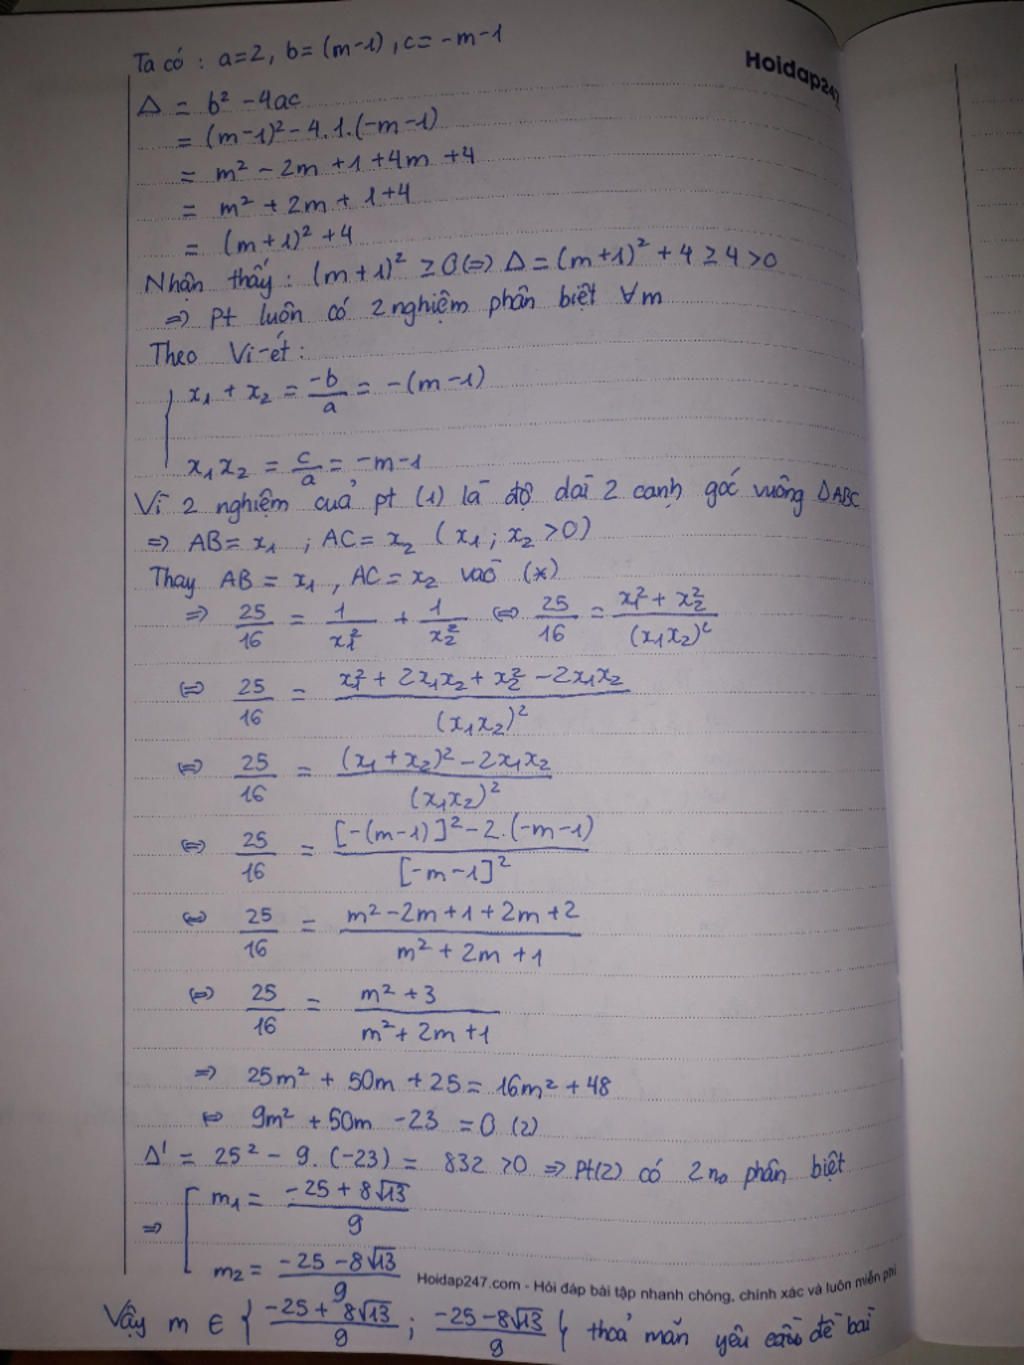 Ta có : a=2, b= (m-1), c= -m-1
Hoidap247
Δ = b² - 4ac
= (m-1)² - 4.1.(-m-1)
= m² - 2m +1 +4m +4
= m² + 2m + 1+4
= (m+1)² +4
Nhận thấy : (m+1)² ≥ 0 (=) Δ = (m+1)² + 4 ≥ 4 >0
=> Pt luôn có 2 nghiệm phân biệt ∀m
Theo Vi-ét :
{ x₁ + x₂ = -b/a = -(m-1)
x₁x₂ = c/a = -m-1
Vì 2 nghiệm của pt (1) là độ dài 2 cạnh góc vuông ΔABC
=> AB= x₁ ; AC= x₂ (x₁ ; x₂ >0)
Thay AB = x₁ , AC = x₂ vào (*)
=> 25/16 = 1/x₁² + 1/x₂² <=> 25/16 = (x₁² + x₂²)/(x₁x₂)²
(=) 25/16 = (x₁² + 2x₁x₂ + x₂² - 2x₁x₂)/(x₁x₂)²
(=) 25/16 = ((x₁ + x₂)² - 2x₁x₂)/(x₁x₂)²
(=) 25/16 = ([-(m-1)]² - 2.(-m-1))/[-m-1]²
<=> 25/16 = (m² - 2m +1 + 2m +2)/(m² + 2m +1)
(=) 25/16 = (m² + 3)/(m² + 2m +1)
=> 25m² + 50m + 25 = 16m² + 48
<=> 9m² + 50m - 23 = 0 (2)
Δ' = 25² - 9.(-23) = 832 >0 => Pt(2) có 2 no phân biệt
=> [ m₁ = (-25 + 8√13)/9
m₂ = (-25 - 8√13)/9
Hoidap247.com - Hỏi đáp bài tập nhanh chóng, chính xác và luôn miễn phí
Vậy m ∈ { (-25 + 8√13)/9 ; (-25 - 8√13)/9 } thoả mãn yêu cầu đề bài